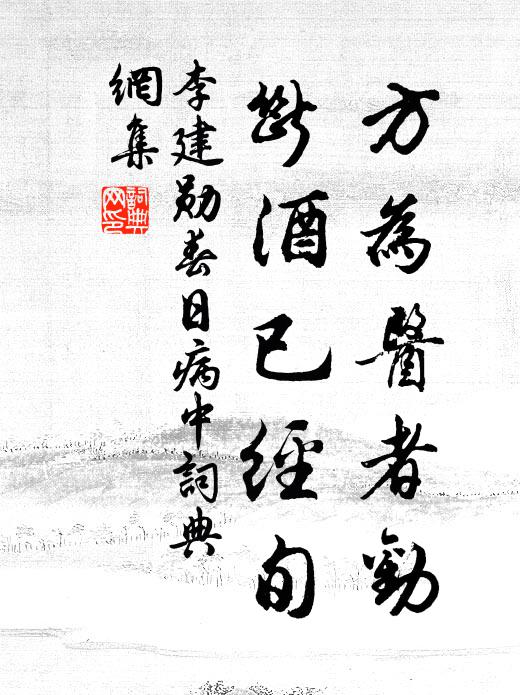 方為醫者勸
斷酒已經旬
李建勛春日病中詞典
網集
詞典
网印